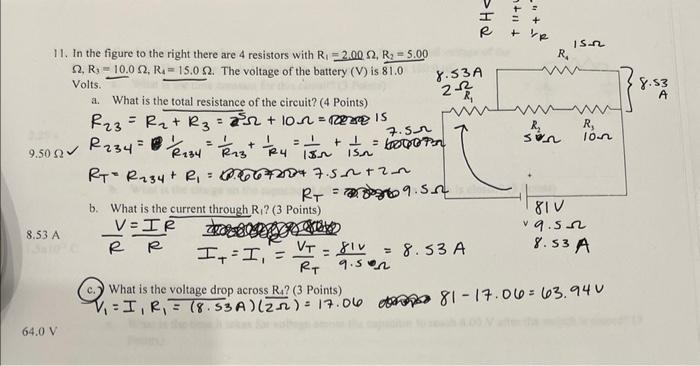 V
I = +
R + 1/R
11. In the figure to the right there are 4 resistors with R₁ = 2.00 Ω, R₂ = 5.00
Ω, R₃ = 10.0 Ω, R₄ = 15.0 Ω. The voltage of the battery (V) is 81.0
Volts.
a. What is the total resistance of the circuit? (4 Points)
R23 = R2 + R3 = 5Ω + 10Ω = 15
9.50 Ω ✓ R234 = 1/R234 = 1/R23 + 1/R4 = 1/15Ω + 1/15Ω = 7.5Ω
RT = R234 + R1 = 7.5Ω + 2Ω
RT = 9.5Ω
b. What is the current through R₁? (3 Points)
V/R = IR/R
8.53 A IT = I1 = VT/RT = 81V/9.5Ω = 8.53 A
c. What is the voltage drop across R₄? (3 Points)
V1 = I1 R1 = (8.53A)(2Ω) = 17.06 81 - 17.06 = 63.94V
64.0 V
15Ω
R₄
8.53A
2Ω
R₁
8.53
A
R₂
5Ω
R₃
10Ω
+
81V
V 9.5Ω
8.53 A